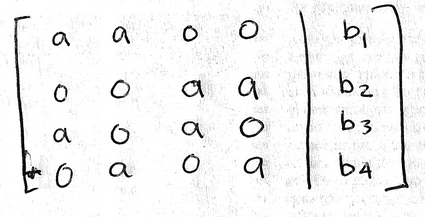 a a 0 0 | b₁
0 0 a a | b₂
a 0 a 0 | b₃
0 a 0 a | b₄